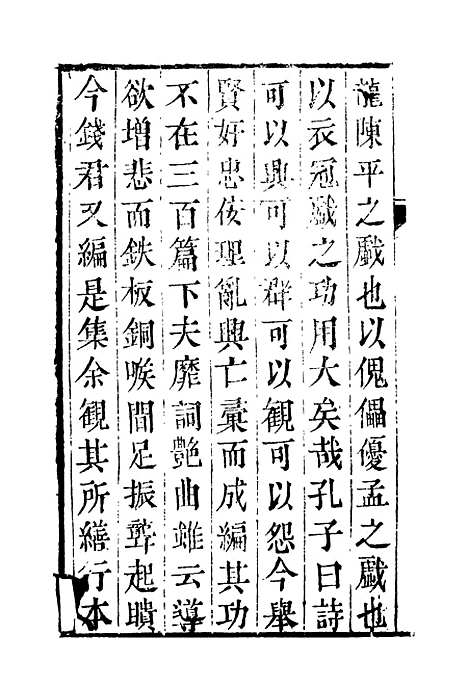 蘢陳平之戲也以傀儡優孟之戲也
以衣冠戲之功用大矣哉孔子曰詩
可以興可以群可以觀可以怨今舉
賢奸忠佞理亂興亡彙而成編其功
不在三百篇下夫靡詞艷曲雖云導
欲增悲而鉄板銅喉間足振聾起聵
今錢君又編是集余観其所繕行本